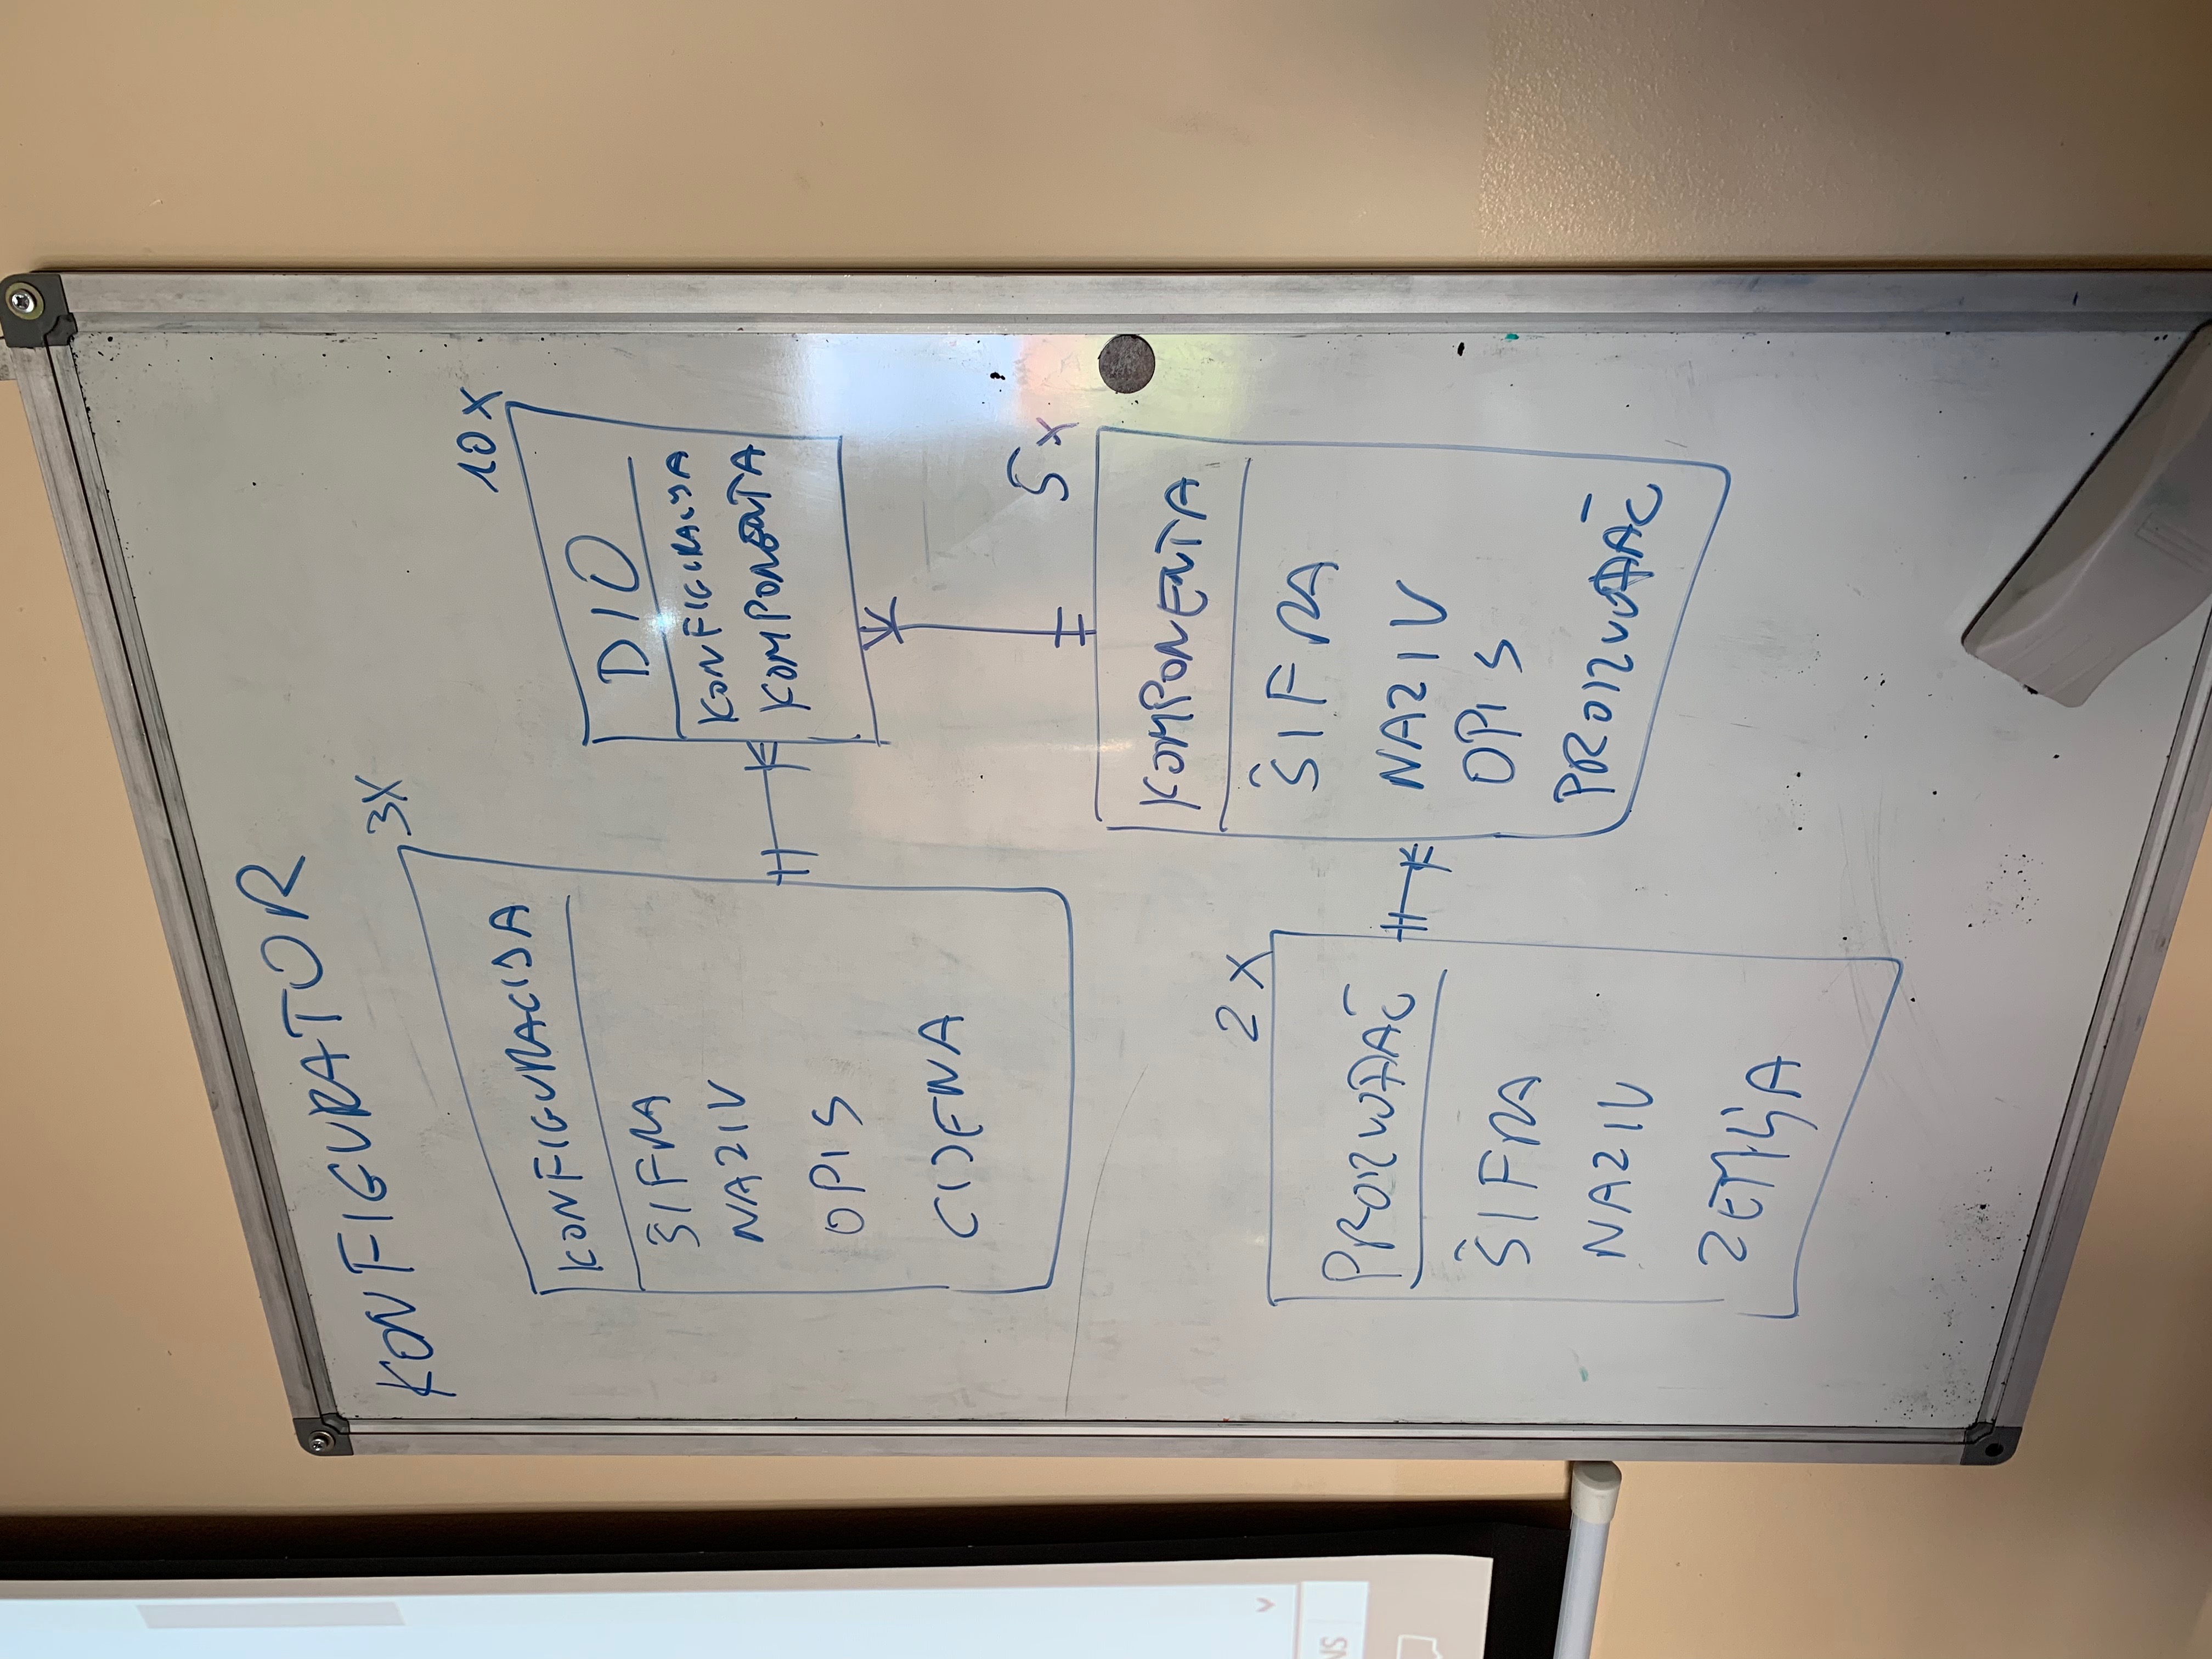 KONFIGURATOR
3X
KONFIGURACIJA
ŠIFRA
NAZIV
OPIS
CIJENA
10X
DIO
KONFIGURACIJA
KOMPONENTA
5X
KOMPONENTA
ŠIFRA
NAZIV
OPIS
PROIZVOĐAČ
2X
PROIZVOĐAČ
ŠIFRA
NAZIV
ZEMLJA
NS